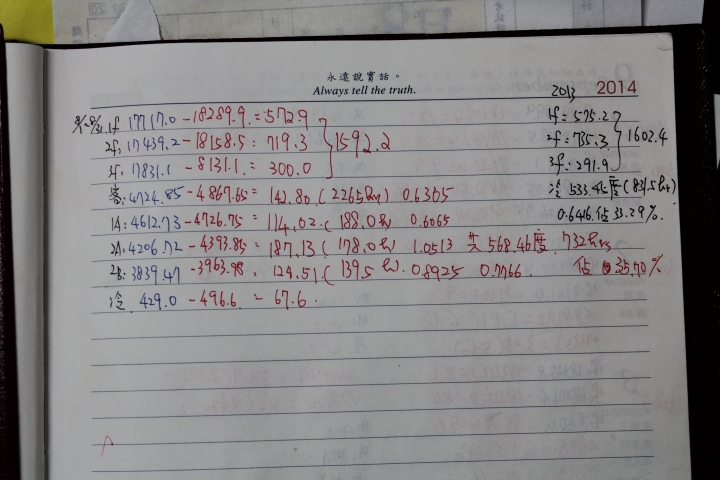 永遠說實話。
Always tell the truth.
2013 2014
8/1-8/31 1f 17717.0 -18289.9. = 572.9 1f = 575.2
2f: 17439.2 -18158.5 = 719.3 } 1592.2 2f = 735.3 } 1602.4
3f: 17831.1 -8131.1 = 300.0 3f: 291.9
4724.85 -4867.65 = 142.80 (226.5hr) 0.6305 冷 533.45度 (831.5hr)
1A: 4612.73 -4726.75 = 114.02. (188.0hr) 0.6065 0.6416. 佔 33.29%.
2A: 4206.72 -4393.85 = 187.13 (178.0hr) 1.0513 共 568.46度. 732hrs
2B: 3839.47 -3963.98 = 124.51 (139.5hr). 0.8925 0.7766 佔 35.70%
冷 429.0 -496.6 = 67.6.